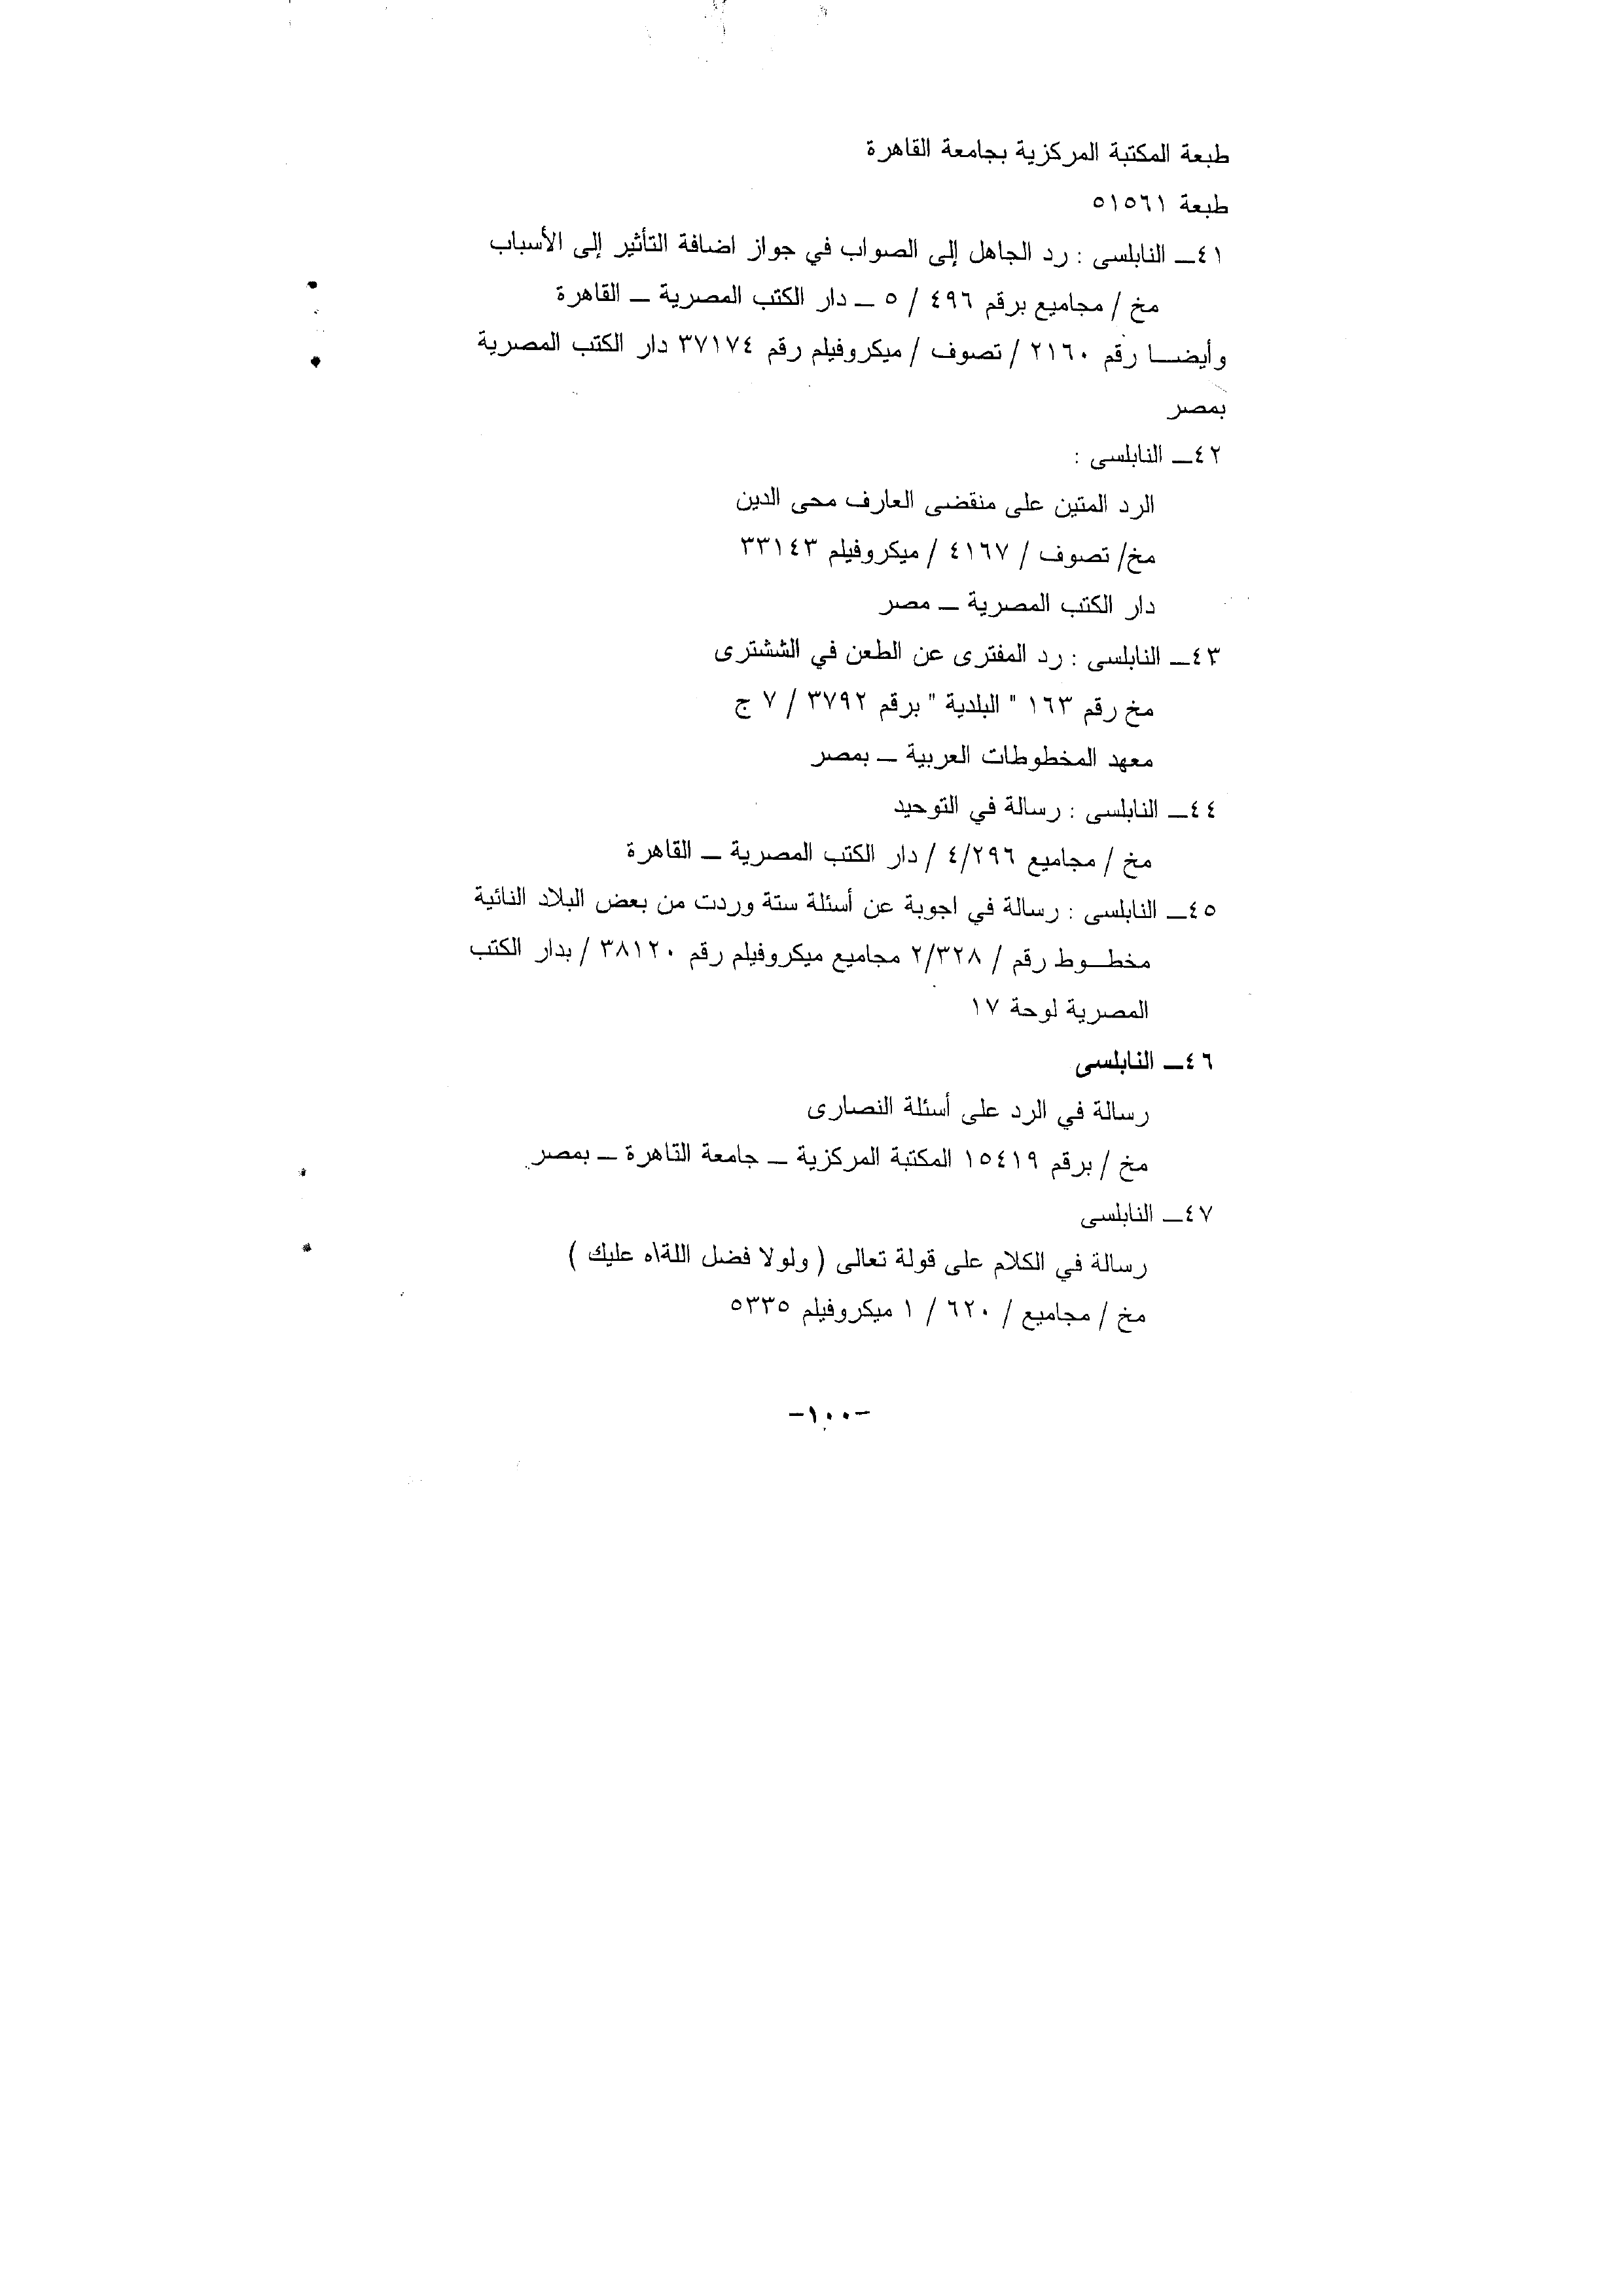 طبعة المكتبة المركزية بجامعة القاهرة
طبعة ٥١٥٦١
٤١ــ النابلسى : رد الجاهل إلى الصواب في جواز اضافة التأثير إلى الأسباب
مخ / مجاميع برقم ٤٩٦ / ٥ ــ دار الكتب المصرية ــ القاهرة
وأيضـــا رقم ٢١٦٠ / تصوف / ميكروفيلم رقم ٣٧١٧٤ دار الكتب المصرية
بمصر
٤٢ــ النابلسى :
الرد المتين على منقضى العارف محى الدين
مخ/ تصوف / ٤١٦٧ / ميكروفيلم ٣٣١٤٣
دار الكتب المصرية ــ مصر
٤٣ــ النابلسى : رد المفترى عن الطعن في الششترى
مخ رقم ١٦٣ " البلدية " برقم ٣٧٩٢ / ٧ ج
معهد المخطوطات العربية ــ بمصر
٤٤ــ النابلسى : رسالة في التوحيد
مخ / مجاميع ٤/٢٩٦ / دار الكتب المصرية ــ القاهرة
٤٥ــ النابلسى : رسالة في اجوبة عن أسئلة ستة وردت من بعض البلاد النائية
مخطــوط رقم / ٢/٣٢٨ مجاميع ميكروفيلم رقم ٣٨١٢٠ / بدار الكتب
المصرية لوحة ١٧
٤٦ــ النابلسى
رسالة في الرد على أسئلة النصارى
مخ / برقم ١٥٤١٩ المكتبة المركزية ــ جامعة القاهرة ــ بمصر
٤٧ــ النابلسى
رسالة في الكلام على قولة تعالى ( ولولا فضل اللة\ه عليك )
مخ / مجاميع / ٦٢٠ / ١ ميكروفيلم ٥٣٣٥
-١٠٠-